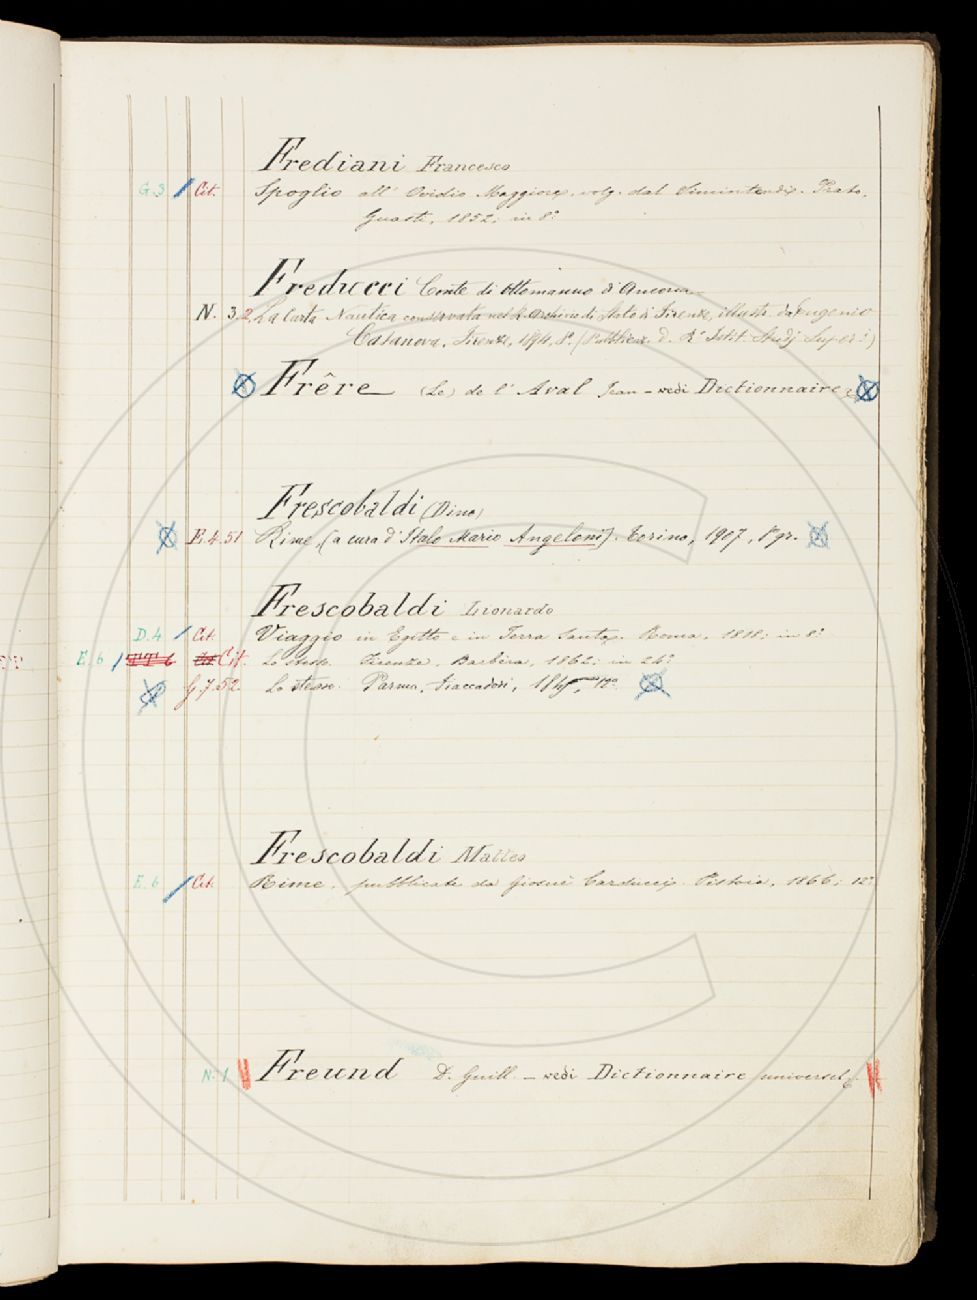 Frediani Francesco
G.3 Cit. Spoglio all' Ovidio Maggiore, volg. dal Simintendi. Prato,
Guasti, 1852; in 8°
Freducci Conte di Ottomanno d'Ancona
N. 3.2. La Carta Nautica conservata nel R. Archivio di Stato di Firenze, illustr. da Eugenio
Casanova, Firenze, 1894, 8°. (Pubblicaz. d. R° Istit. Studj Super:i)
Frêre (Le) de l' Aval Jean – vedi Dictionnaire
Frescobaldi (Dino)
E.4.51 Rime, (a cura d' Italo Mario Angeloni). Torino, 1907, 8° gr.
Frescobaldi Lionardo
D.4 Cit. Viaggio in Egitto e in Terra Santa. Roma, 1818; in 8°
E.6 Cit. Lo stesso. Firenze, Barbèra, 1862; in 24°
G.7.52. Lo stesso. Parma, Fiaccadori, 12°
Frescobaldi Matteo
E.6 Cit. Rime, pubblicate da Giosuè Carducci. Pistoia, 1866; 12°
N.1 Freund D. Guill. – vedi Dictionnaire universel